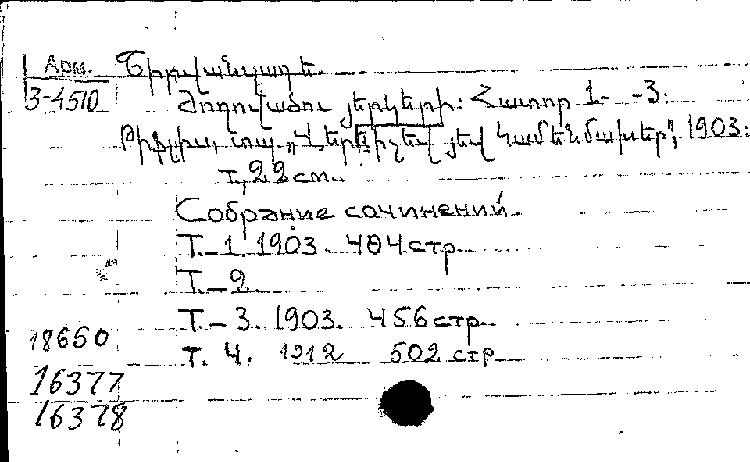 Арм. Շիրվանզադե.
3-4510
Ժողովածու յերկերի: Հատոր 1- -3:
Թիֆլիս, տպ. յեվ 1903:
22 см.
Собрание сочинений.
Т.-1 1903. 484 стр.
Т.-2
Т.-3. 1903. 456 стр.
Т. 4. 1912 502 стр
18660
16377
16378